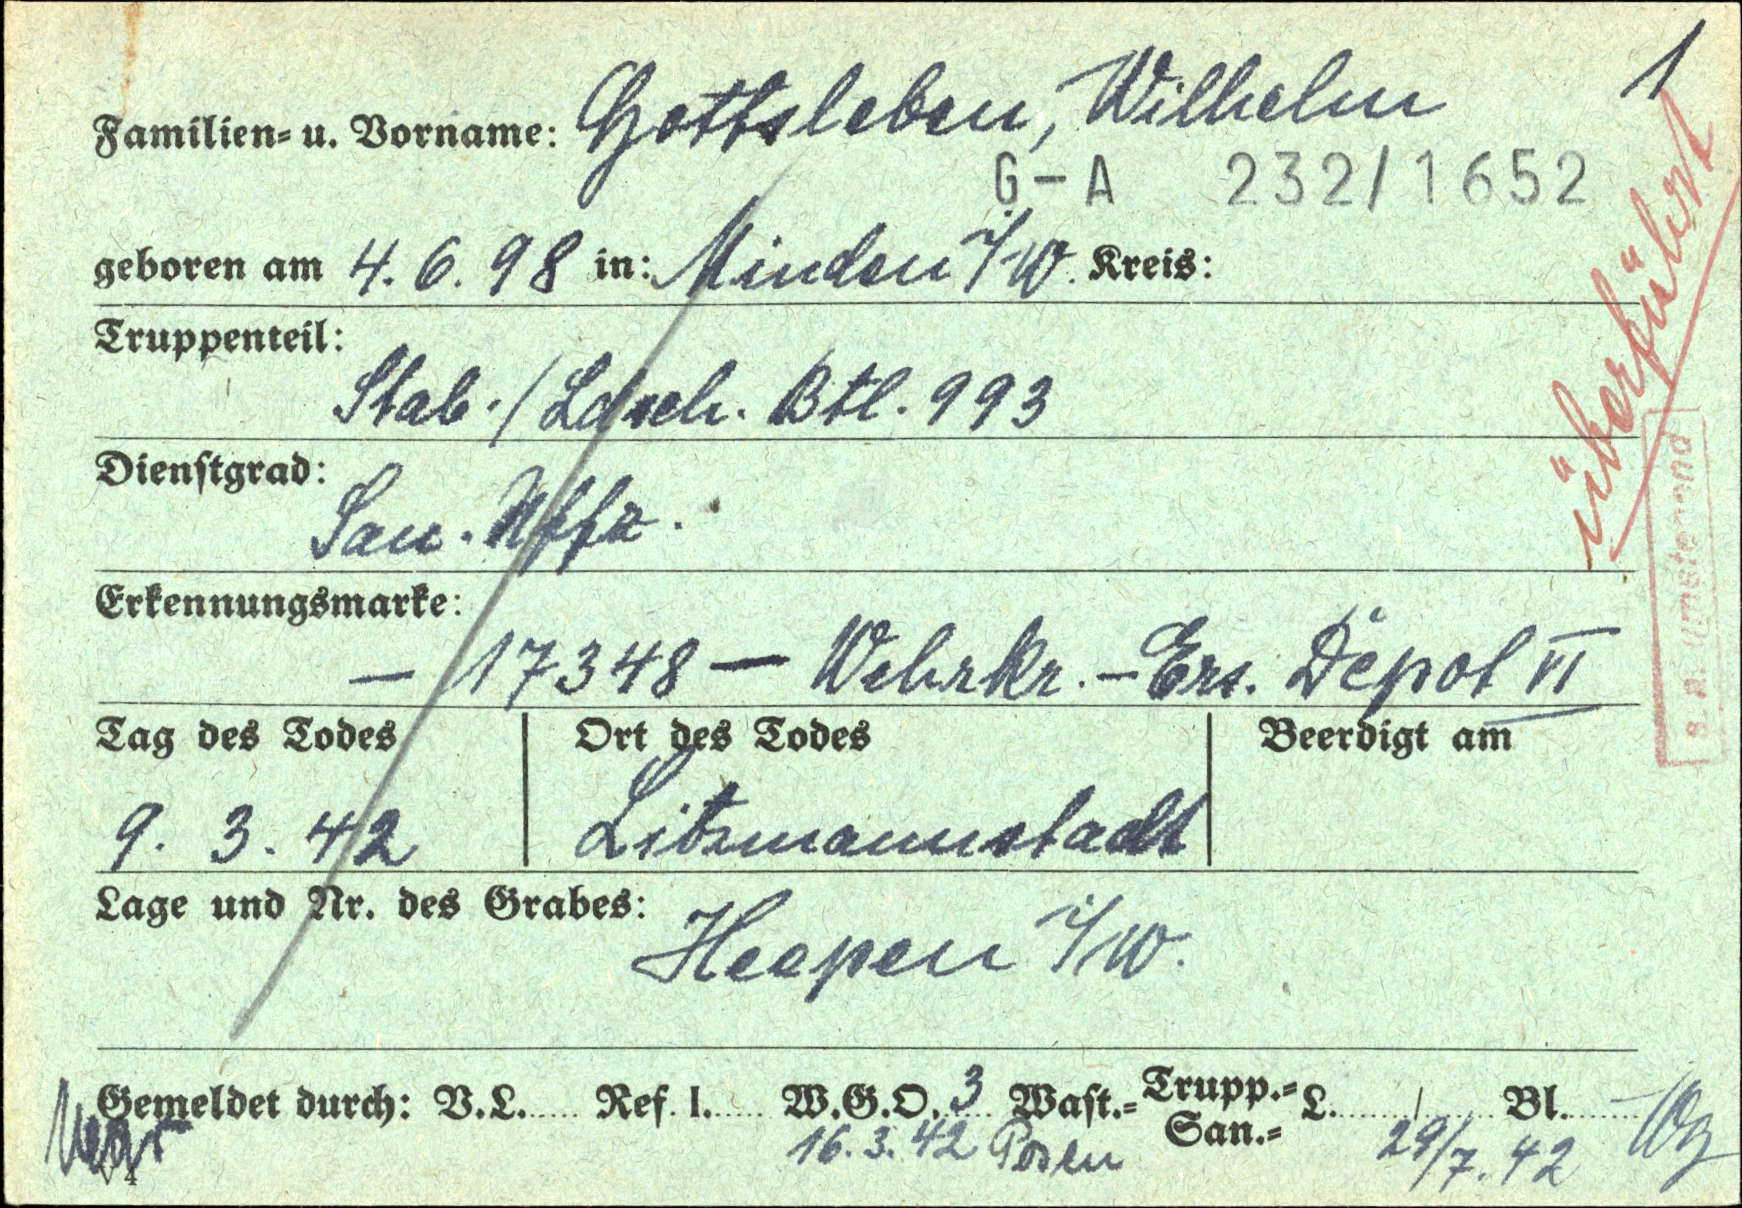 1
Familien= u. Vorname: Gottsleben, Wilhelm
G-A 232/1652
geboren am 4. 6. 98 in: Minden i/W. Kreis:
überführt
Truppenteil:
Stab./Ldsch. Btl. 993
Dienstgrad:
San. Uffz.
Erkennungsmarke:
— 17348 — Wehrkr.-Ers. Depot VI
Tag des Todes Ort des Todes Beerdigt am
9. 3. 42 Litzmannstadt
Lage und Nr. des Grabes:
Heepen i/W.
Gemeldet durch: V.L. Ref. I. W.G.O. 3 Wast.= Trupp.= L. / Bl.
San.=
16. 3. 42 Posen 29/7. 42